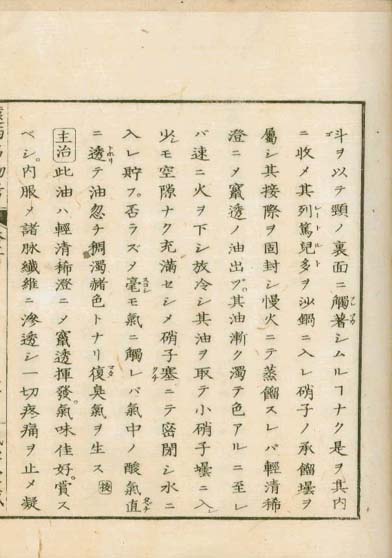 斗ヲ以テ頸ノ裏面ニ觸著シムルヿナク是ヲ其内
ニ收メ其列篤兒多ヲ沙鍋ニ入レ硝子ノ承餾壜ヲ
屬シ其接際ヲ固封シ慢火ニテ蒸餾スレバ輕清稀
澄ニメ竄透ノ油出ブ其油漸ク濁テ色アルニ至レ
バ速ニ火ヲ下シ放冷シ其油ヲ取テ小硝子壜ニ入
少シモ空隙ナク充滿セシメ硝子塞ニテ密閉シ水ニ
入レ貯フ。否ラズメ毫モ氣ニ觸レバ氣中ノ酸氣直
ニ透テ油忽チ稠濁褚色トナリ復臭氣ヲ生ス 按
主治 此油ハ輕清稀澄ニメ竄透揮發。氣味佳好。賞ス
ベシ。内服メ諸脉纖維ニ滲透シ一切疼痛ヲ止メ凝